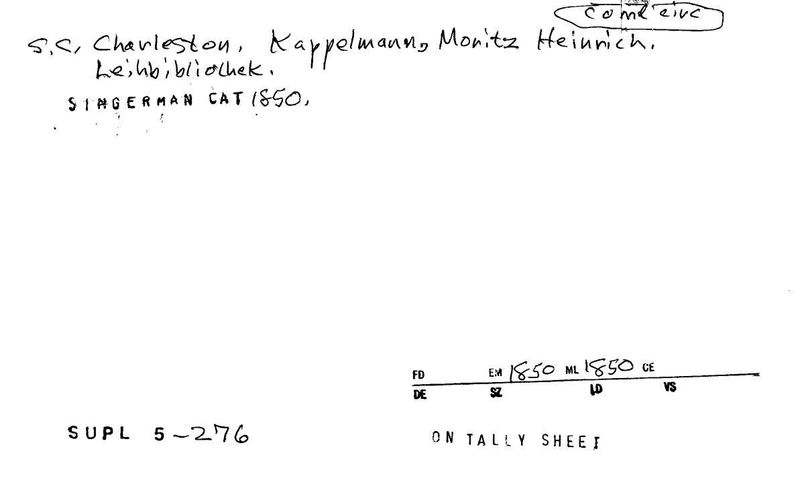 coml circ
S.C. Charleston. Kappelmann, Moritz Heinrich.
Leihbibliothek.
SINGERMAN CAT 1850.
FD EM 1850 ML 1850 CE
DE SZ LD VS
SUPL 5-276
ON TALLY SHEET